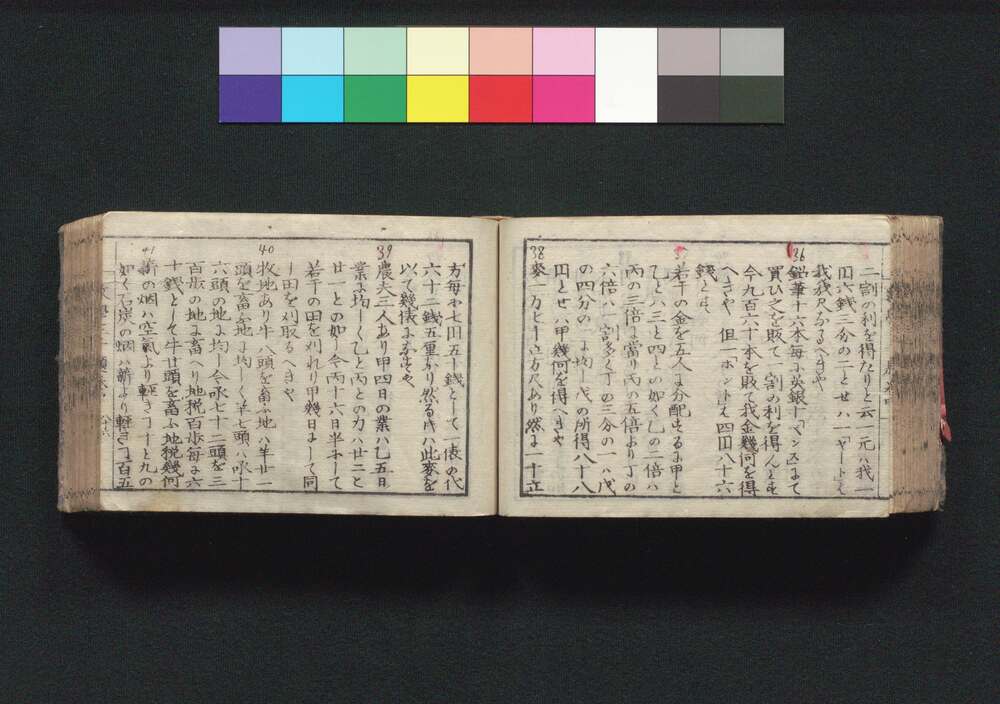 二割の利を得たりと云一元ハ我一
円六銭三分の二とせハ一「ヤード」ハ
我我尺なるへきや
36
鉛筆十六本毎に英銀十「ペンス」にて
買ひ之を販て一割の利を得んとす
今九百六十本を販て我金幾何を得
へきや但一「ポンド」ハ四円八十六
銭とす
若干の金を五人に分配するに甲と
乙とハ三と四との如く乙の二倍ハ
丙の三倍に當り丙の五倍より丁の
六倍ハ一割多く丁の三分の一ハ戊
の四分の一に均し戊の所得八十八
円とせハ甲幾何を得へきや
38
麥一万七千立方尺あり然に一十立
方毎に七円五十銭として一俵の代
六十二銭五厘なり然る時ハ此麥を
以て幾俵になすや
39
農夫三人あり甲四日の業ハ乙五日
業に均しく乙と丙との力ハ廿二と
廿一との如し今丙十六日半にして
若干の田を刈れり甲幾日にして同
し田を刈取るへきや
40
牧地あり牛八頭を畜ふ地ハ羊廿一
頭を畜ふ地に均しく羊七頭ハ
六頭の地に均し今七十二頭を三
百畝の地に畜へり地税百畝毎に六
十銭として牛廿頭を畜ふ地税幾何
41
薪の烟ハ空氣より輕き十と九の
如く石炭の烟ハ薪より軽き百五